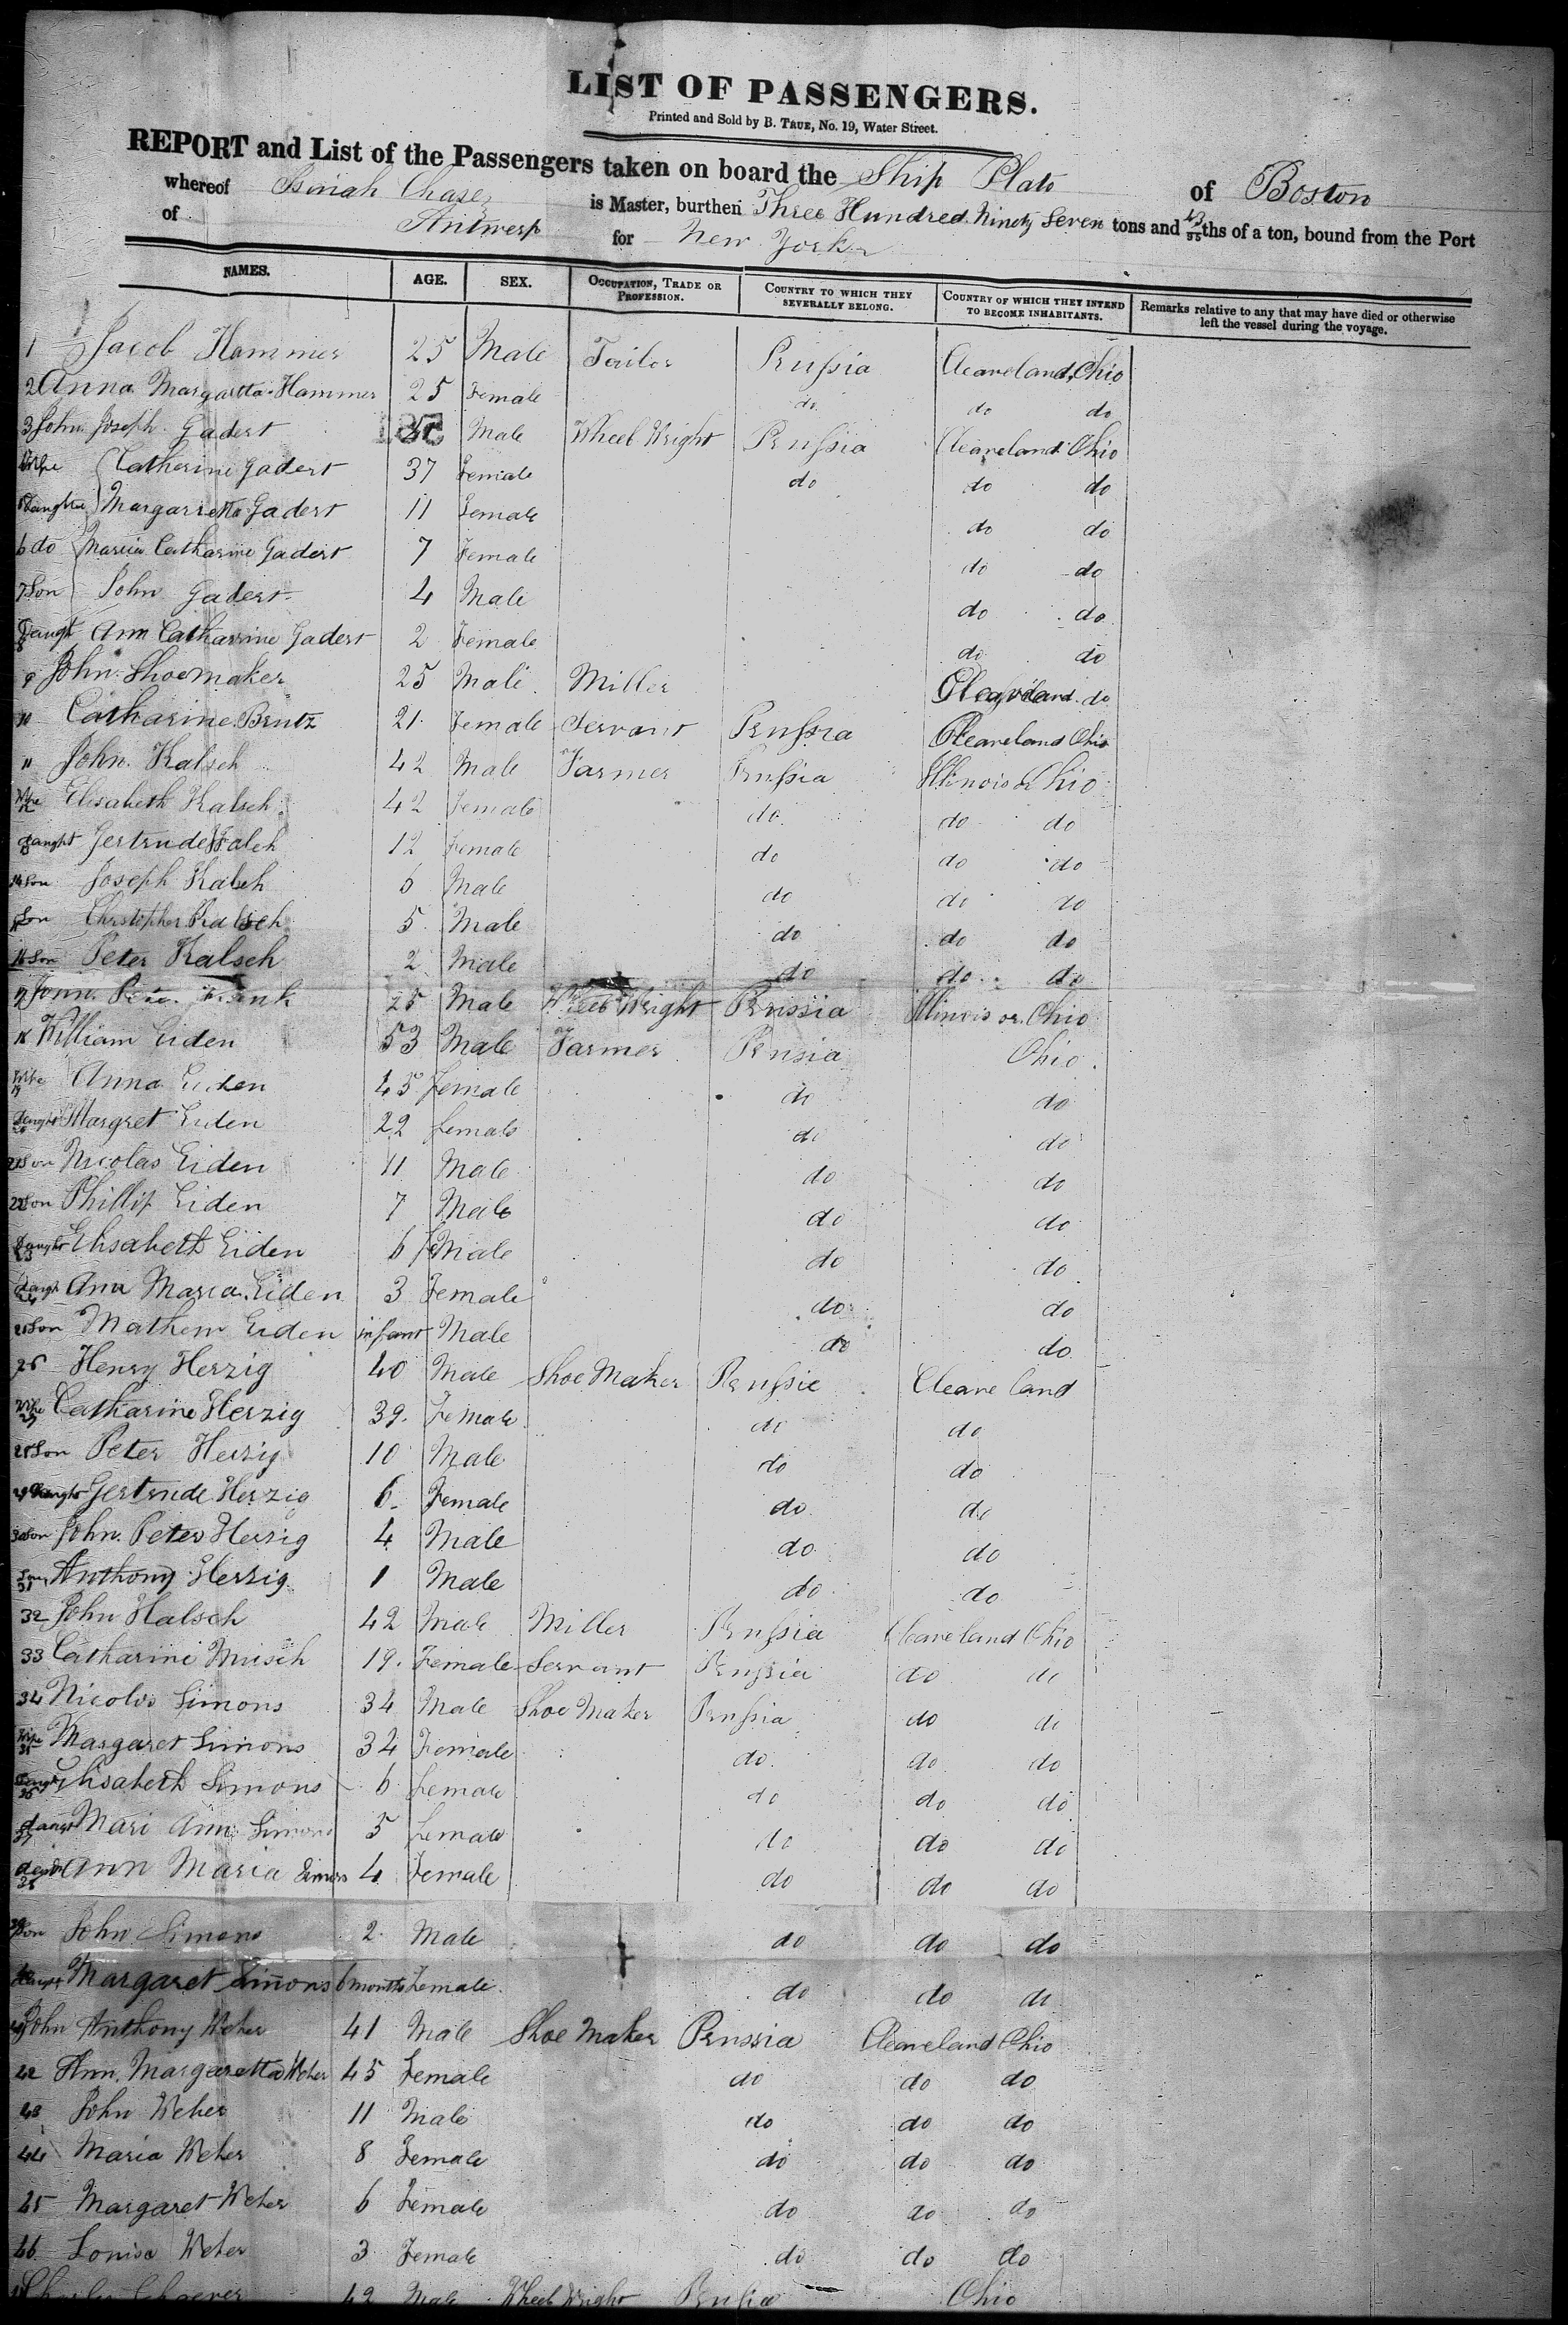 LIST OF PASSENGERS.
Printed and Sold by B. TRUE, No. 19, Water Street.
REPORT and List of the Passengers taken on board the Ship Plato of Boston
whereof Chase, is Master, burthen Three Hundred Ninety Seven tons and 43/95ths of a ton, bound from the Port
of Antwerp for New York
NAMES. AGE. SEX. OCCUPATION, TRADE OR PROFESSION. COUNTRY TO WHICH THEY SEVERALLY BELONG. COUNTRY OF WHICH THEY INTEND TO BECOME INHABITANTS. Remarks relative to any that may have died or otherwise left the vessel during the voyage.
1 Jacob Hammer 25 Male Tailor Prussia Cleaveland, Ohio
2 Anna Margartta Hammer 25 Female do do do
3 John Joseph Gadert Male Wheel Wright Prussia Cleaveland Ohio
Wife Catherine Gadert 37 Female do do do
Daughter Margarretta Gadert 11 Female do do
6 do Marcia Catharine Gadert 7 Female do do
7 Son John Gadert 4 Male do do
8 Daugt Ann Catharrine Gadert 2 Female do do
9 John Shoemaker 25 Male Miller Cleaveland do
10 Catharine Brutz 21 Female Servant Prussia Cleaveland Ohio
11 John Kalsch 42 Male Farmer Prussia Illinois or Ohio
12 Wife Elisabeth Kalsch 42 Female do do do
daught Gertrude Kalch 12 Female do do do
14 Son Joseph Kalsch 6 Male do do do
15 Son Christopher Kalsch 5 Male do do do
16 Son Peter Kalsch 2 Male do do do
17 John Frank 25 Male Wheel Wright Prussia Illinois or Ohio
18 William Eiden 53 Male Farmer Prusia Ohio
Wife 19 Anna Eiden 45 female do do
daught 20 Margret Eiden 22 female do do
21 Son Nicolas Eiden 11 Male do do
22 Son Phillip Eiden 7 Male do do
Daught 23 Elisabeth Eiden 6 feMale do do
daugt 24 Ann Maria Eiden 3 Female do do
25 Son Mathew Eiden infant Male do do
26 Henry Herzig 40 Male Shoe Maker Prussia Cleaveland
Wife 27 Catharine Herzig 39 Female do do
28 Son Peter Herzig 10 Male do do
29 Daught Gertrude Herzig 6 Female do do
30 Son John Peter Herzig 4 Male do do
Son 31 Anthony Herzig 1 Male do do
32 John Halsch 42 Male Miller Prussia Cleaveland Ohio
33 Catharine Misch 19 Female Servant Prussia do do
34 Nicolos Simons 34 Male Shoe Maker Prussia do do
Wife 35 Margaret Simons 34 Female do do do
Daugt 36 Elisabeth Simons 6 Female do do do
daugt 37 Mari Ann Simons 5 Female do do do
38 Ann Maria Simons 4 Female do do do
39 Son John Simons 2 Male do do do
40 Margaret Simons 6 months Female do do do
41 John Anthony Weber 41 Male Shoe Maker Prussia Cleaveland Ohio
42 Ann Margaretta Weber 45 Female do do do
43 John Weber 11 Male do do do
44 Maria Weber 8 Female do do do
45 Margaret Weber 6 Female do do do
46 Louisa Weber 3 Female do do do
42 Male Wheel Wright Prusia Ohio